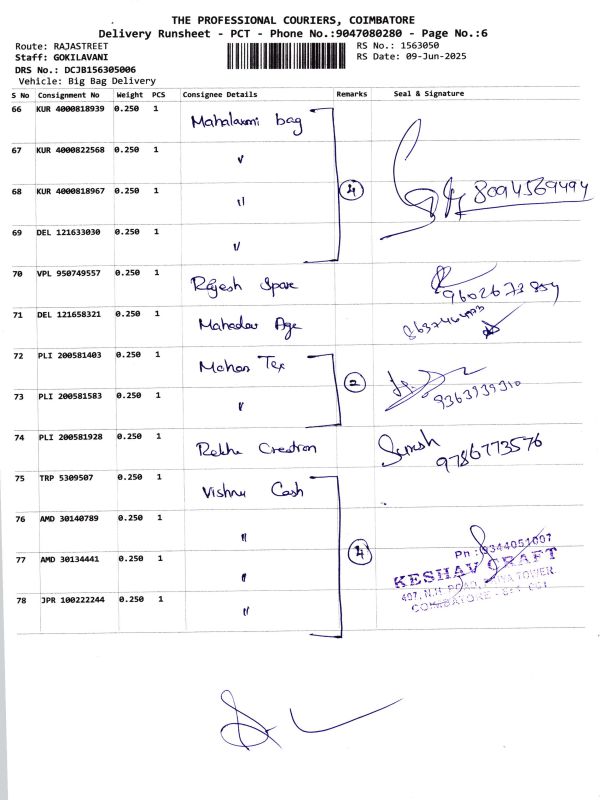 THE PROFESSIONAL COURIERS, COIMBATORE
Delivery Runsheet - PCT - Phone No.:9047080280 - Page No.:6
Route: RAJASTREET RS No.: 1563050
Staff: GOKILAVANI RS Date: 09-Jun-2025
DRS No.: DCJB156305006
Vehicle: Big Bag Delivery
S No Consignment No Weight PCS Consignee Details Remarks Seal & Signature
66 KUR 4000818939 0.250 1 Mahalaxmi bag
67 KUR 4000822568 0.250 1 "
68 KUR 4000818967 0.250 1 " 4 8094569494
69 DEL 121633030 0.250 1 "
70 VPL 950749557 0.250 1 Rajesh Spare
71 DEL 121658321 0.250 1 Mahadev Age
72 PLI 200581403 0.250 1 Mohan Tex
73 PLI 200581583 0.250 1 " 2 9363939310
74 PLI 200581928 0.250 1 Rekha Creation Suresh 9786773576
75 TRP 5309507 0.250 1 Vishnu Cash
76 AMD 30140789 0.250 1 "
77 AMD 30134441 0.250 1 " 4 Ph : 9344051007
KESHAV CRAFT
78 JPR 100222244 0.250 1 "
COIMBATORE - 641 001